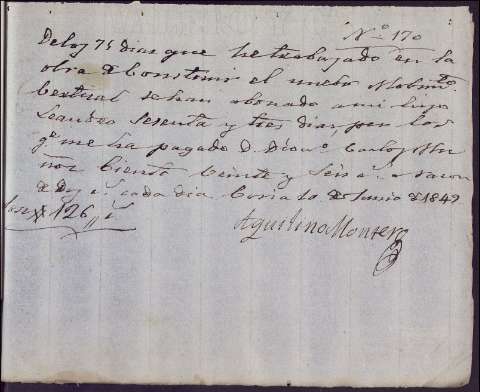 Nº 170
De los 75 dias que he trabajado en la
obra de Construir el nuebo
se han abonado a mi hijo
Leandro Sesenta y tres dias, por los
qe me ha pagado D. Carlos
Ciento Veinte y Seis rs a razon
de dos rs cada dia. Coria 10 de Junio de 1849
126 rs
Aquilino Montero